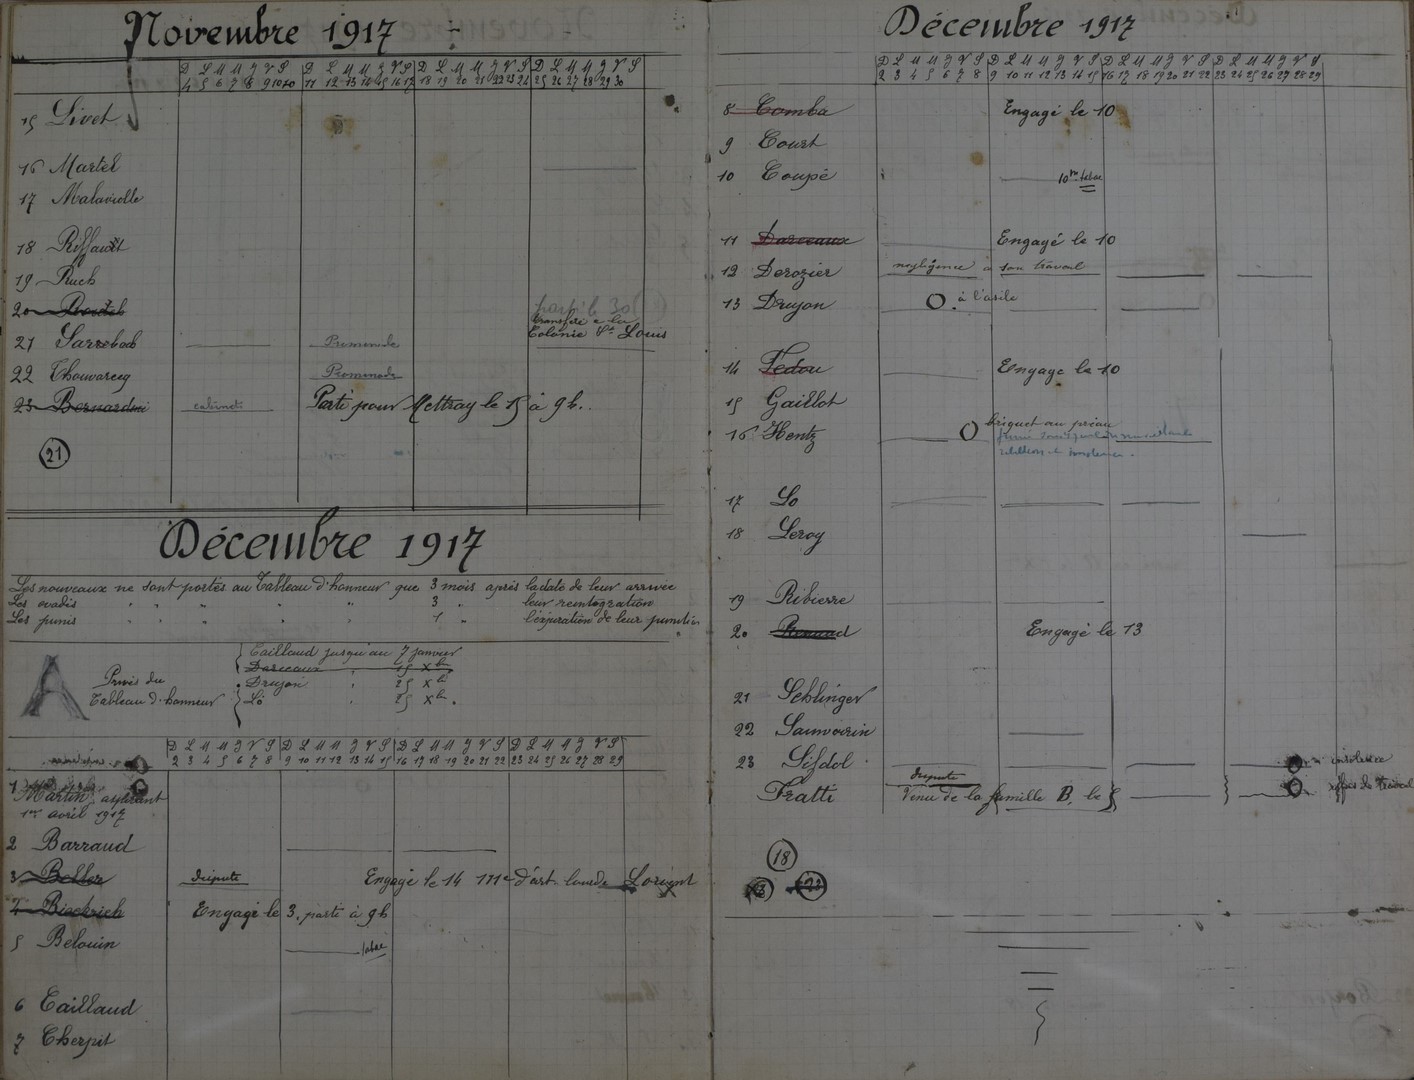 Novembre 1917
D L M M J V S D L M M J V S D L M M J V S D L M M J V S
4 5 6 7 8 9 10 11 12 13 14 15 16 17 18 19 20 21 22 23 24 25 26 27 28 29 30
15 Livet
16 Martel
17 Malaviolle
18 Riffault
19 Ruch
20
parti le 30
transféré à la
Colonie St Louis
21 Sarrebach Promenade
22 Chouvarcq Promenade
23 Bernardini cabinets Parti pour Mettray le 15 à 9h..
21
Décembre 1917
Les nouveaux ne sont portés au Tableau d'honneur que 3 mois après la date de leur arrivée
Les évadés " " " " " 3 " leur réintégration
Les punis " " " " " 1 " l'expiration de leur punition
A Privés du Tableau d'honneur
Caillaud jusqu'au 7 janvier
Darceaux " 25 Xbre
Drujon " 25 Xbre
Lô " 25 Xbre.
D L M M J V S D L M M J V S D L M M J V S D L M M J V S
2 3 4 5 6 7 8 9 10 11 12 13 14 15 16 17 18 19 20 21 22 23 24 25 26 27 28 29
1 Martin, aspirant
1er avril 1917
2 Barraud
3 Beller dispute Engagé le 14 111e d'art. lourde Lorient
4 Engagé le 3, parti à 9h
5 Belouin tabac
6 Caillaud
7 Cherpit
Décembre 1917
D L M M J V S D L M M J V S D L M M J V S D L M M J V S
2 3 4 5 6 7 8 9 10 11 12 13 14 15 16 17 18 19 20 21 22 23 24 25 26 27 28 29
8 Comba Engagé le 10
9 Court
10 Coupé 10 tabac
11 Darceaux Engagé le 10
12 Derozier négligence à son travail
13 Drujon O. à l'asile
14 Fédou Engagé le 10
15 Gaillot
16 Hentz O briquet au préau
17 Lo
18 Leroy
19 Ribierre
20 Engagé le 13
21 Schlinger
22 Sauvoirin
23 Sisdol insolence
dispute
Fratti Venu de la famille B, le refus de travail
18
23